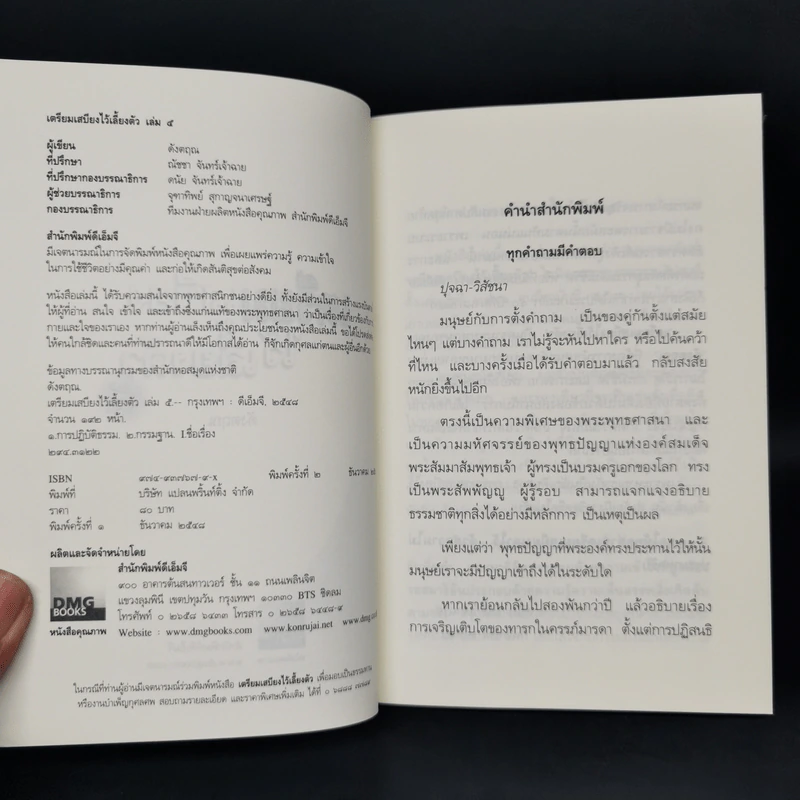 เตรียมเสบียงไว้เลี้ยงตัว เล่ม ๕
ผู้เขียน ดังตฤณ
ที่ปรึกษา ณัชชา จันทร์เจ้าฉาย
ที่ปรึกษากองบรรณาธิการ ดนัย จันทร์เจ้าฉาย
ผู้ช่วยบรรณาธิการ จุฑาทิพย์ สุกาญจนาเศรษฐ์
กองบรรณาธิการ ทีมงานฝ่ายผลิตหนังสือคุณภาพ สำนักพิมพ์ดีเอ็มจี
สำนักพิมพ์ดีเอ็มจี
มีเจตนารมณ์ในการจัดพิมพ์หนังสือคุณภาพ เพื่อเผยแพร่ความรู้ ความเข้าใจ
ในการใช้ชีวิตอย่างมีคุณค่า และก่อให้เกิดสันติสุขต่อสังคม
หนังสือเล่มนี้ ได้รับความสนใจจากพุทธศาสนิกชนอย่างดียิ่ง ทั้งยังมีส่วนในการสร้างแรง
ให้ผู้ที่อ่าน สนใจ เข้าใจ และเข้าถึงซึ่งแก่นแท้ของพระพุทธศาสนา ว่าเป็นเรื่องที่เกี่ยวข้องกับ
กายและใจของเราเอง หากท่านผู้อ่านเล็งเห็นถึงคุณประโยชน์ของหนังสือเล่มนี้ ขอได้โปรด
ให้คนใกล้ชิดและคนที่ท่านปรารถนาดีให้มีโอกาสได้อ่าน ก็จักเกิดกุศลแก่ตนและผู้อื่นอีกด้วย
ข้อมูลทางบรรณานุกรมของสำนักหอสมุดแห่งชาติ
ดังตฤณ.
เตรียมเสบียงไว้เลี้ยงตัว เล่ม ๕.-- กรุงเทพฯ : ดีเอ็มจี, ๒๕๔๘
จำนวน ๑๙๒ หน้า.
๑.การปฏิบัติธรรม. ๒.กรรมฐาน. I.ชื่อเรื่อง
๒๙๔.๓๑๒๒
ISBN ๙๗๔-๙๓๗๖๗-๙-x พิมพ์ครั้งที่ ๒ ธันวาคม
พิมพ์ที่ บริษัท แปลนพริ้นท์ติ้ง จำกัด
ราคา ๘๐ บาท
พิมพ์ครั้งที่ ๑ ธันวาคม ๒๕๔๘
ผลิตและจัดจำหน่ายโดย
สำนักพิมพ์ดีเอ็มจี
๙๐๐ อาคารต้นสนทาวเวอร์ ชั้น ๑๑ ถนนเพลินจิต
แขวงลุมพินี เขตปทุมวัน กรุงเทพฯ ๑๐๓๓๐ BTS ชิดลม
โทรศัพท์ ๐ ๒๖๕๘ ๖๔๓๓ โทรสาร ๐ ๒๖๕๘ ๖๔๔๘-๙
DMG
BOOKS
หนังสือคุณภาพ Website : www.dmgbooks.com, www.konrujai.net www.dmg.
ในกรณีที่ท่านผู้อ่านมีเจตนารมณ์ร่วมพิมพ์หนังสือ เตรียมเสบียงไว้เลี้ยงตัว เพื่อมอบเป็นธรรมทาน
หรืองานบำเพ็ญกุศลศพ สอบถามรายละเอียด และราคาพิเศษเพิ่มเติม ได้ที่ ๐ ๖๘๘๘
คำนำสำนักพิมพ์
ทุกคำถามมีคำตอบ
ปุจฉา-วิสัชนา
มนุษย์กับการตั้งคำถาม เป็นของคู่กันตั้งแต่สมัย
ไหนๆ แต่บางคำถาม เราไม่รู้จะหันไปหาใคร หรือไปค้นคว้า
ที่ไหน และบางครั้งเมื่อได้รับคำตอบมาแล้ว กลับสงสัย
หนักยิ่งขึ้นไปอีก
ตรงนี้เป็นความพิเศษของพระพุทธศาสนา และ
เป็นความมหัศจรรย์ของพุทธปัญญาแห่งองค์สมเด็จ
พระสัมมาสัมพุทธเจ้า ผู้ทรงเป็นบรมครูเอกของโลก ทรง
เป็นพระสัพพัญญู ผู้รู้รอบ สามารถแจกแจงอธิบาย
ธรรมชาติทุกสิ่งได้อย่างมีหลักการ เป็นเหตุเป็นผล
เพียงแต่ว่า พุทธปัญญาที่พระองค์ทรงประทานไว้ให้นั้น
มนุษย์เราจะมีปัญญาเข้าถึงได้ในระดับใด
หากเราย้อนกลับไปสองพันกว่าปี แล้วอธิบายเรื่อง
การเจริญเติบโตของทารกในครรภ์มารดา ตั้งแต่การปฏิสนธิ